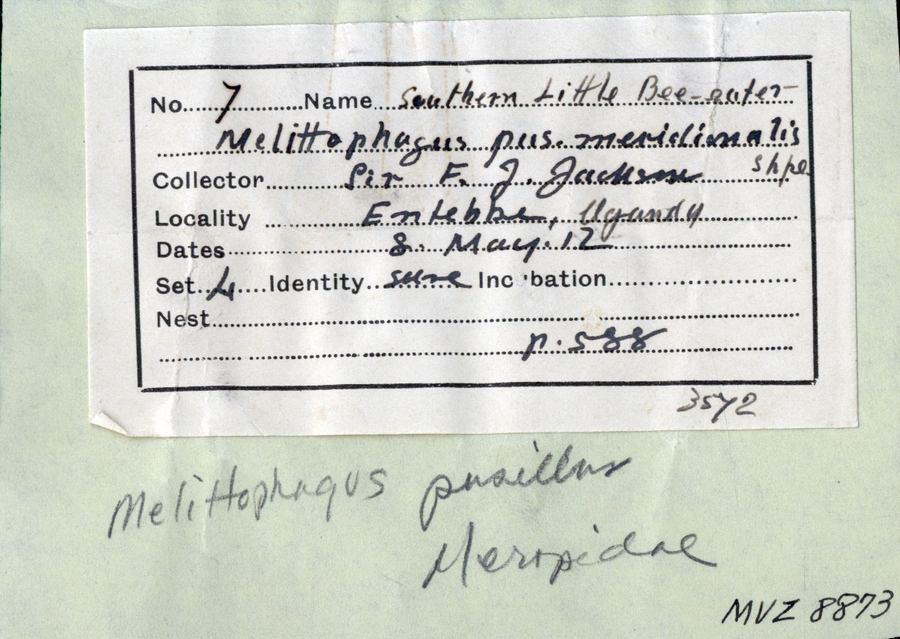 No. 7 Name Southern Little Bee-eater
Melittophagus pus. meridionalis
Shpe
Collector Sir F. J. Jackson
Locality Entebbe, Uganda
Dates 8. May. 12
Set 4 Identity sure Incubation
Nest
p. 588
3572
Melittophagus pusillus
Meropidae
MVZ 8873